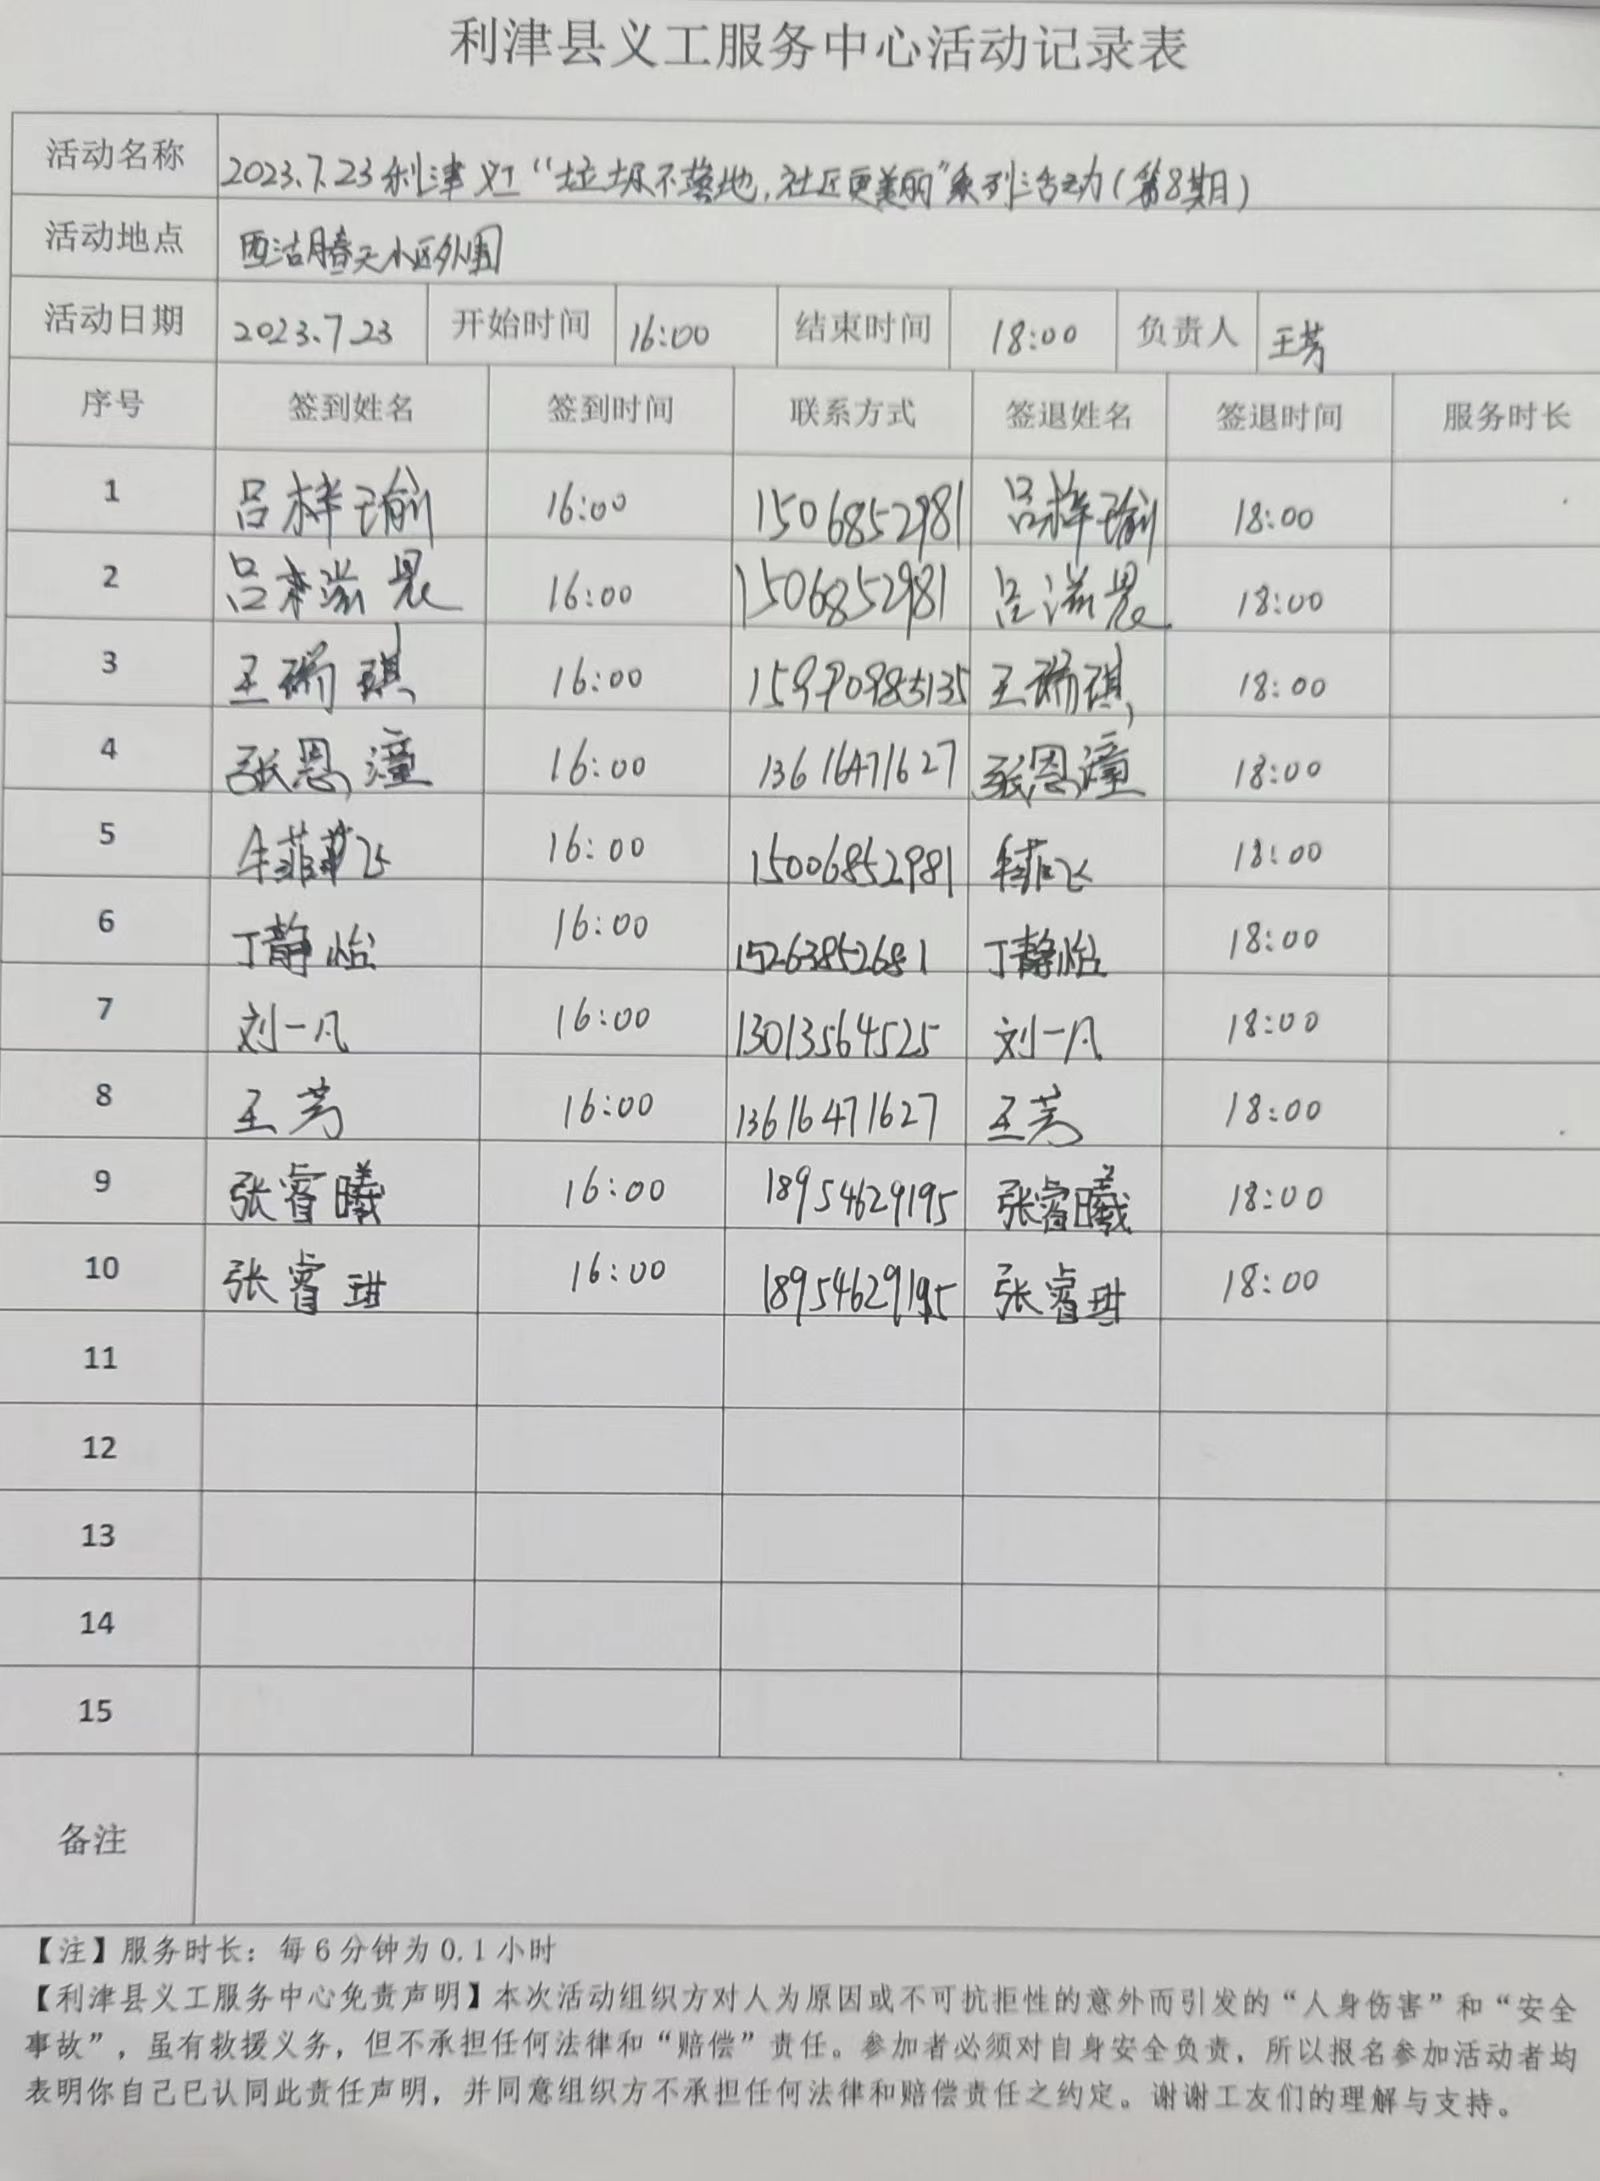 利津县义工服务中心活动记录表
活动名称 2023.7.23利津义工“垃圾不落地,社区更美丽”系列活动(第8期)
活动地点 西湖春天小区外围
活动日期 2023.7.23 开始时间 16:00 结束时间 18:00 负责人 王芳
序号 签到姓名 签到时间 联系方式 签退姓名 签退时间 服务时长
1 吕梓瑜 16:00 1506852981 吕梓瑜 18:00
2 吕 滋晨 16:00 1506852981 吕滋晨 18:00
3 王瑞琪 16:00 王瑞琪 18:00
4 张恩潼 16:00 13616471627 张恩潼 18:00
5 16:00 15006852981 18:00
6 丁静怡 16:00 15263852681 丁静怡 18:00
7 刘一凡 16:00 13013564525 刘一凡 18:00
8 王芳 16:00 13616471627 王芳 18:00
9 张睿曦 16:00 18954629195 张睿曦 18:00
10 张睿琪 16:00 18954629195 张睿琪 18:00
11
12
13
14
15
备注
【注】服务时长：每6分钟为0.1小时
【利津县义工服务中心免责声明】本次活动组织方对人为原因或不可抗拒性的意外而引发的“人身伤害”和“安全
事故”，虽有救援义务，但不承担任何法律和“赔偿”责任。参加者必须对自身安全负责，所以报名参加活动者均
表明你自己已认同此责任声明，并同意组织方不承担任何法律和赔偿责任之约定。谢谢工友们的理解与支持。